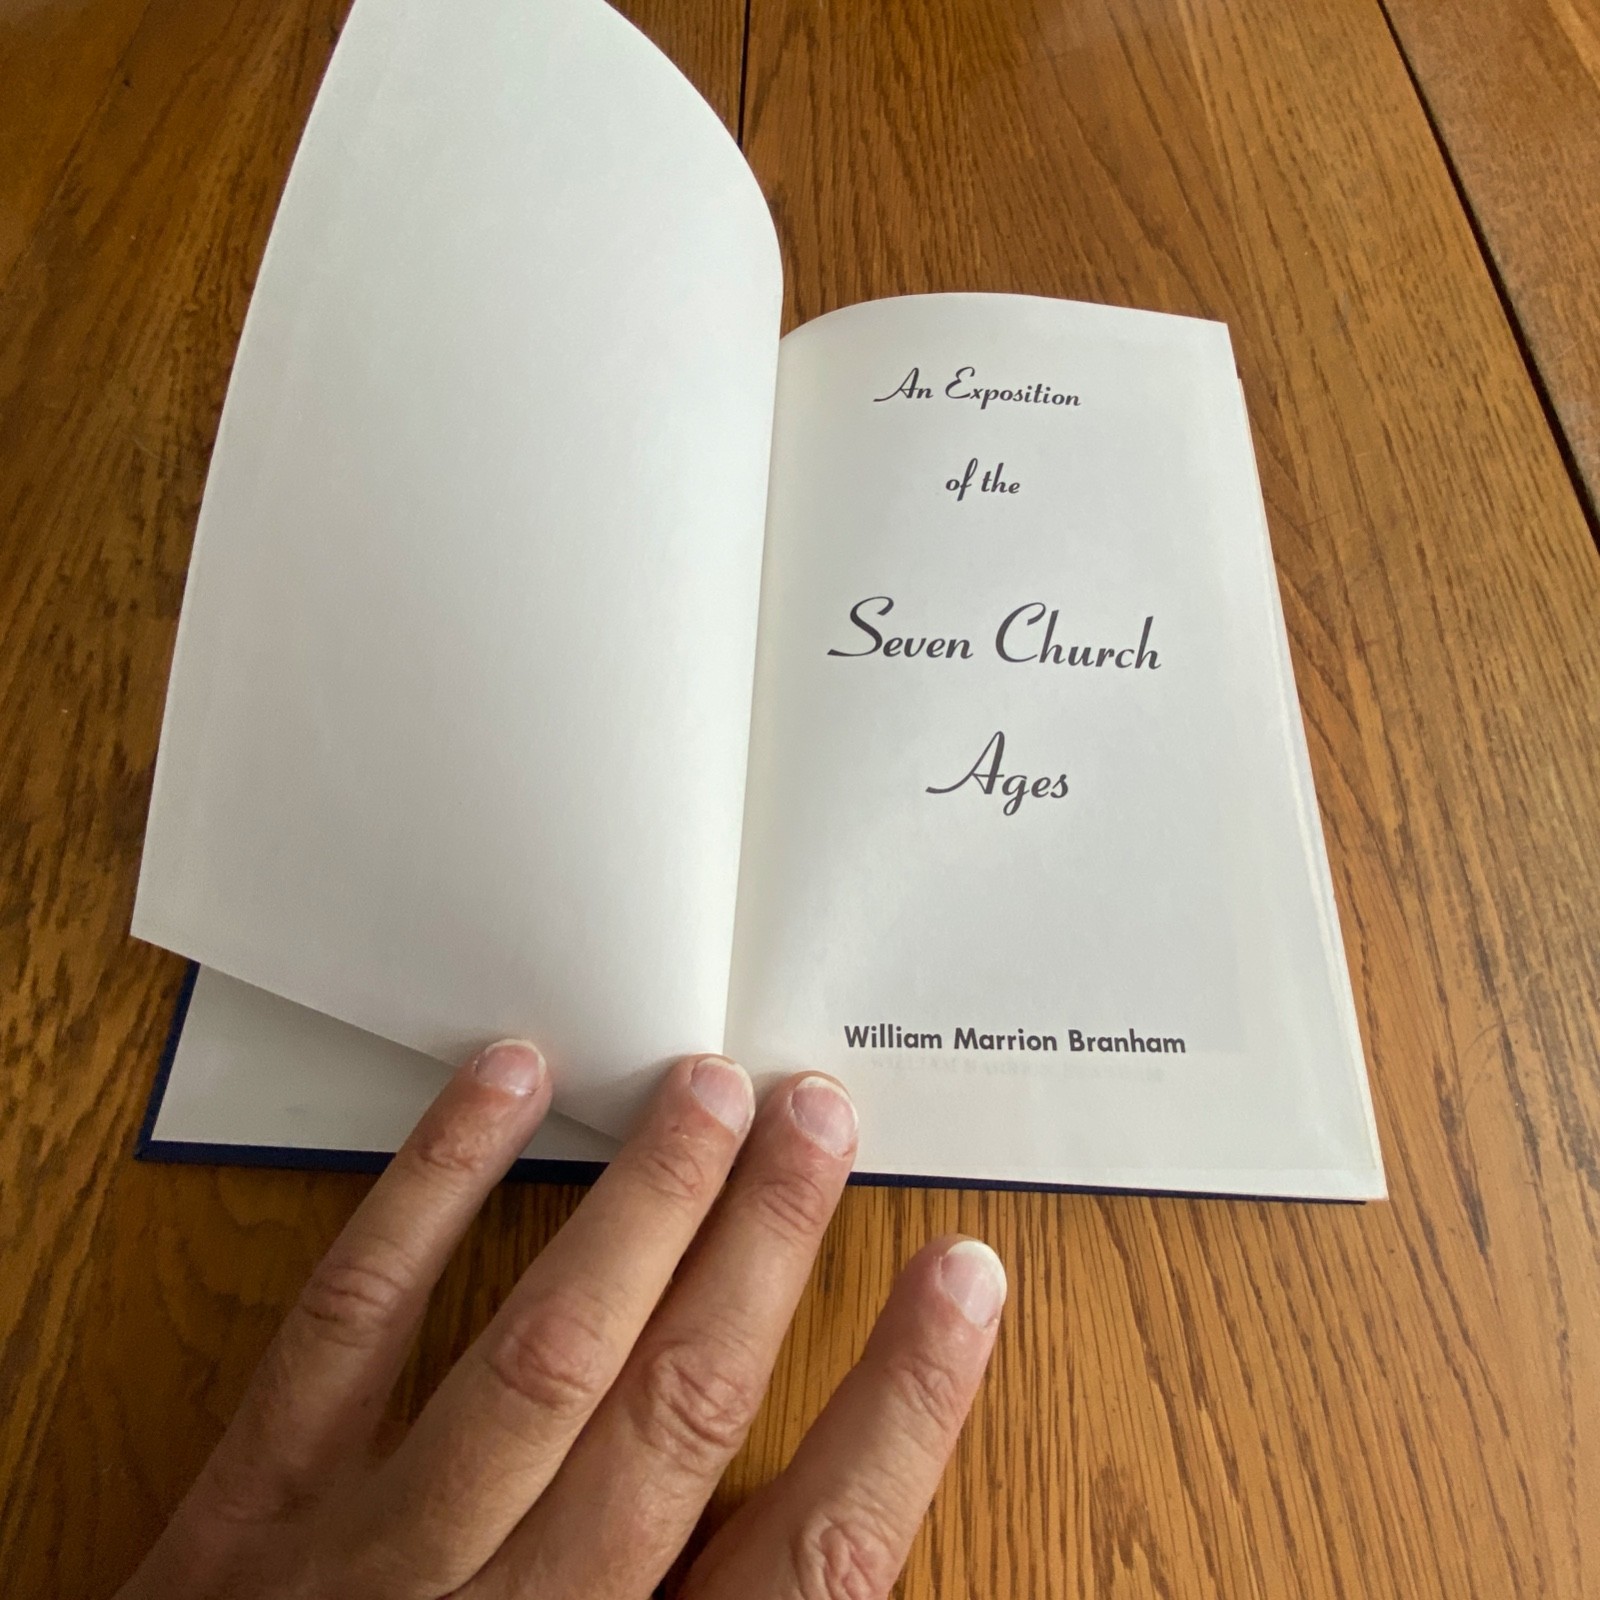 An Exposition
of the
Seven Church
Ages
William Marrion Branham